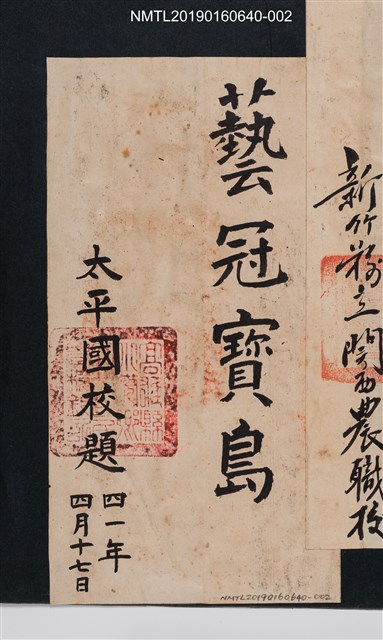 NMTL20190160640-002
新竹縣立關西農職校
藝冠寶島
太平國校題
四一年
四月十七日
NMTL20190160640-002